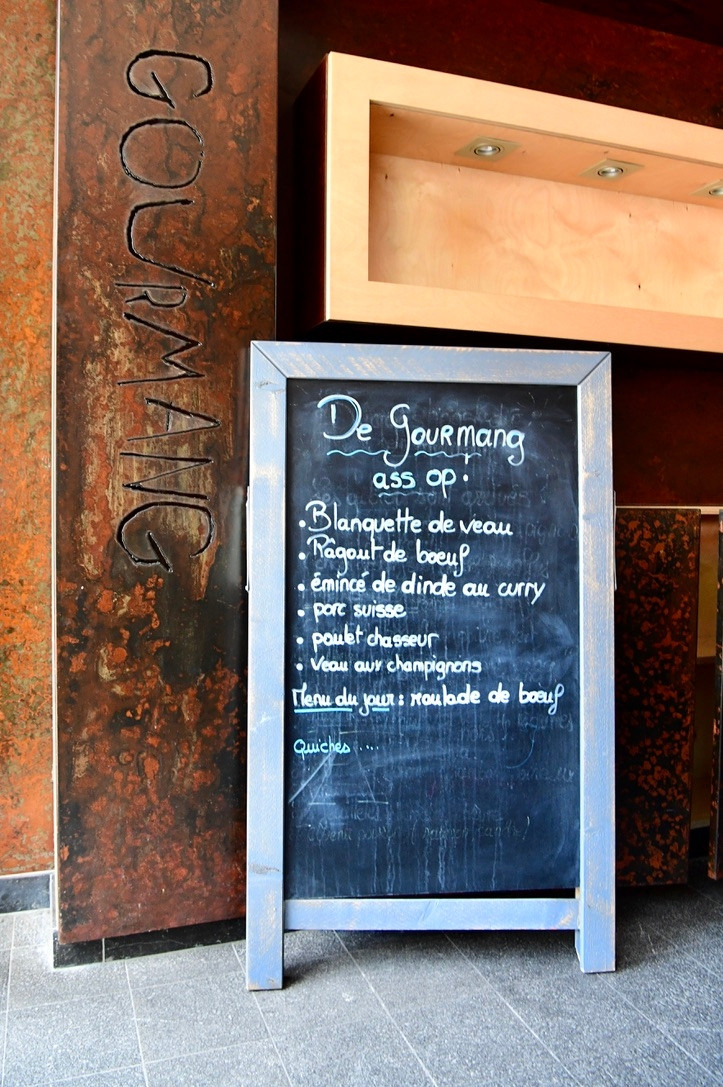 GOURMANG
De Gourmang
ass op.
• Blanquette de veau
• Ragout de boeuf
• émincé de dinde au curry
• porc suisse
• poulet chasseur
• veau aux champignons
Menu du jour : roulade de boeuf
Quiches ....